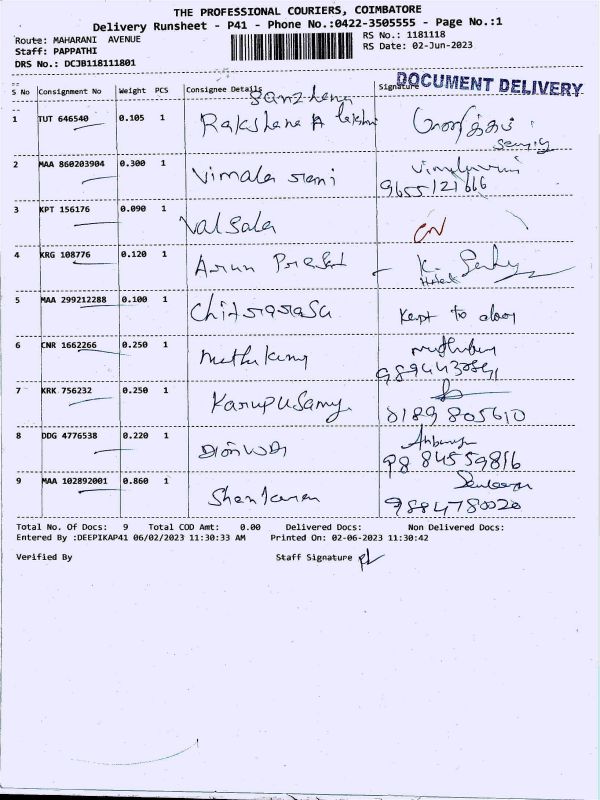 THE PROFESSIONAL COURIERS, COIMBATORE
Delivery Runsheet - P41 - Phone No.:0422-3505555 - Page No.:1
Route: MAHARANI AVENUE
RS No.: 1181118
Staff: PAPPATHI
RS Date: 02-Jun-2023
DRS No.: DCJB118111801
DOCUMENT DELIVERY
S No Consignment No Weight PCS Consignee Details Signature
1 TUT 646540 0.105 1
2 MAA 860203904 0.300 1 Vimala rani
9655121666
3 KPT 156176 0.090 1 Valsala
4 KRG 108776 0.120 1 Arun Prasad K.
5 MAA 299212288 0.100 1 Chitrarasu Kept to door
6 CNR 1662266 0.250 1
7 KRK 756232 0.250 1 Karupusamy
8189805610
8 DDG 4776538 0.220 1
9884559816
9 MAA 102892001 0.860 1 Shankaran
9884780020
Total No. Of Docs: 9 Total COD Amt: 0.00 Delivered Docs: Non Delivered Docs:
Entered By :DEEPIKAP41 06/02/2023 11:30:33 AM Printed On: 02-06-2023 11:30:42
Verified By Staff Signature